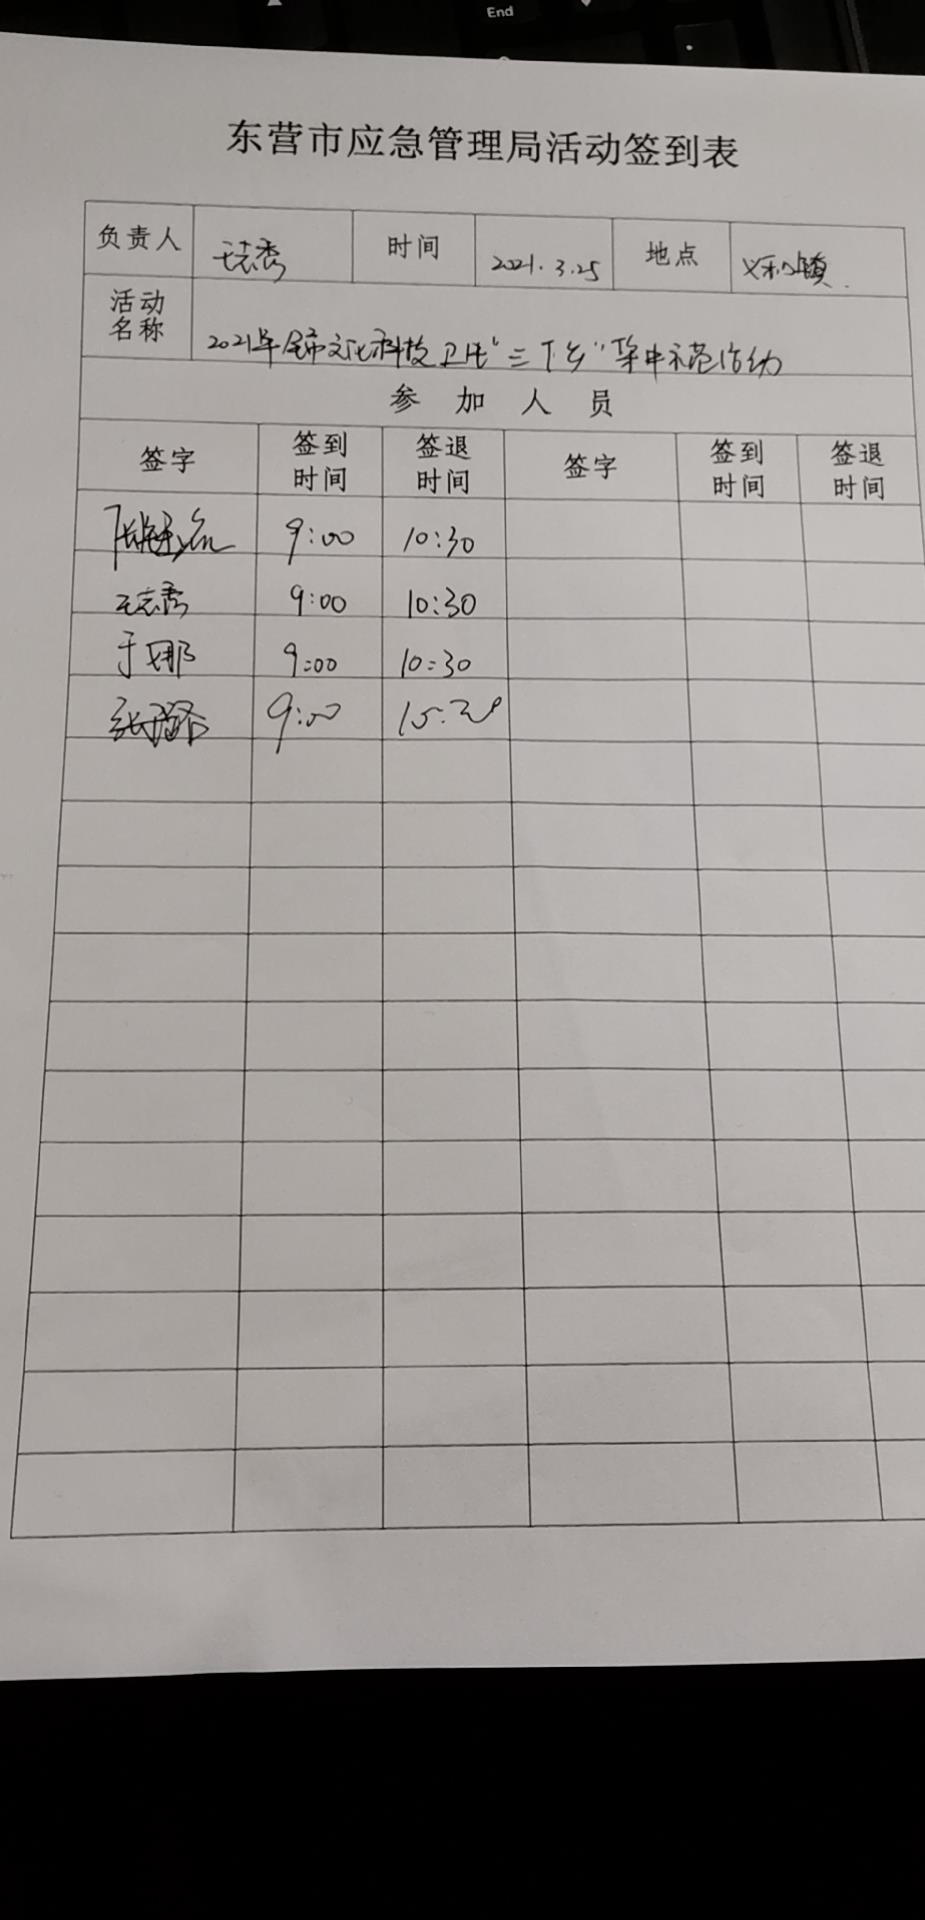 End
东营市应急管理局活动签到表
负责人 王志秀 时间 2021.3.25 地点 义和镇
活动名称 2021年全市文化科技卫生“三下乡”集中示范活动
参加人员
签字 签到时间 签退时间 签字 签到时间 签退时间
9:00 10:30
王志秀 9:00 10:30
于娜 9:00 10:30
9:00